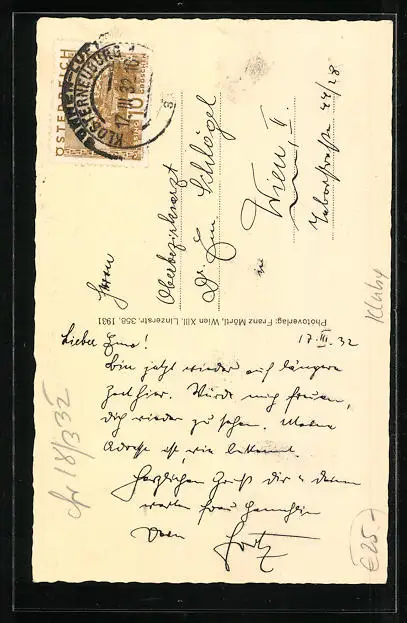 ÖSTERREICH
10 GROSCHEN
KLOSTERNEUBURG
17.III.32
Herrn
Oberbezirksarzt
Dr. Em. Schlögel
in Wien II.
Taborstrasse 24/28
Photoverlag: Franz Mörtl, Wien XIII. Linzerstr. 358, 1931
17.III.32
Lieber !
Bin jetzt wieder auf längere
Zeit hier. Würde mich freuen,
dich wieder zu sehen. Meine
Adresse ist wie bekannt.
Herzlichen Gruß dir u deiner
werten Frau Gemahlin
Dein
Fritz
18/3 32
€25.-